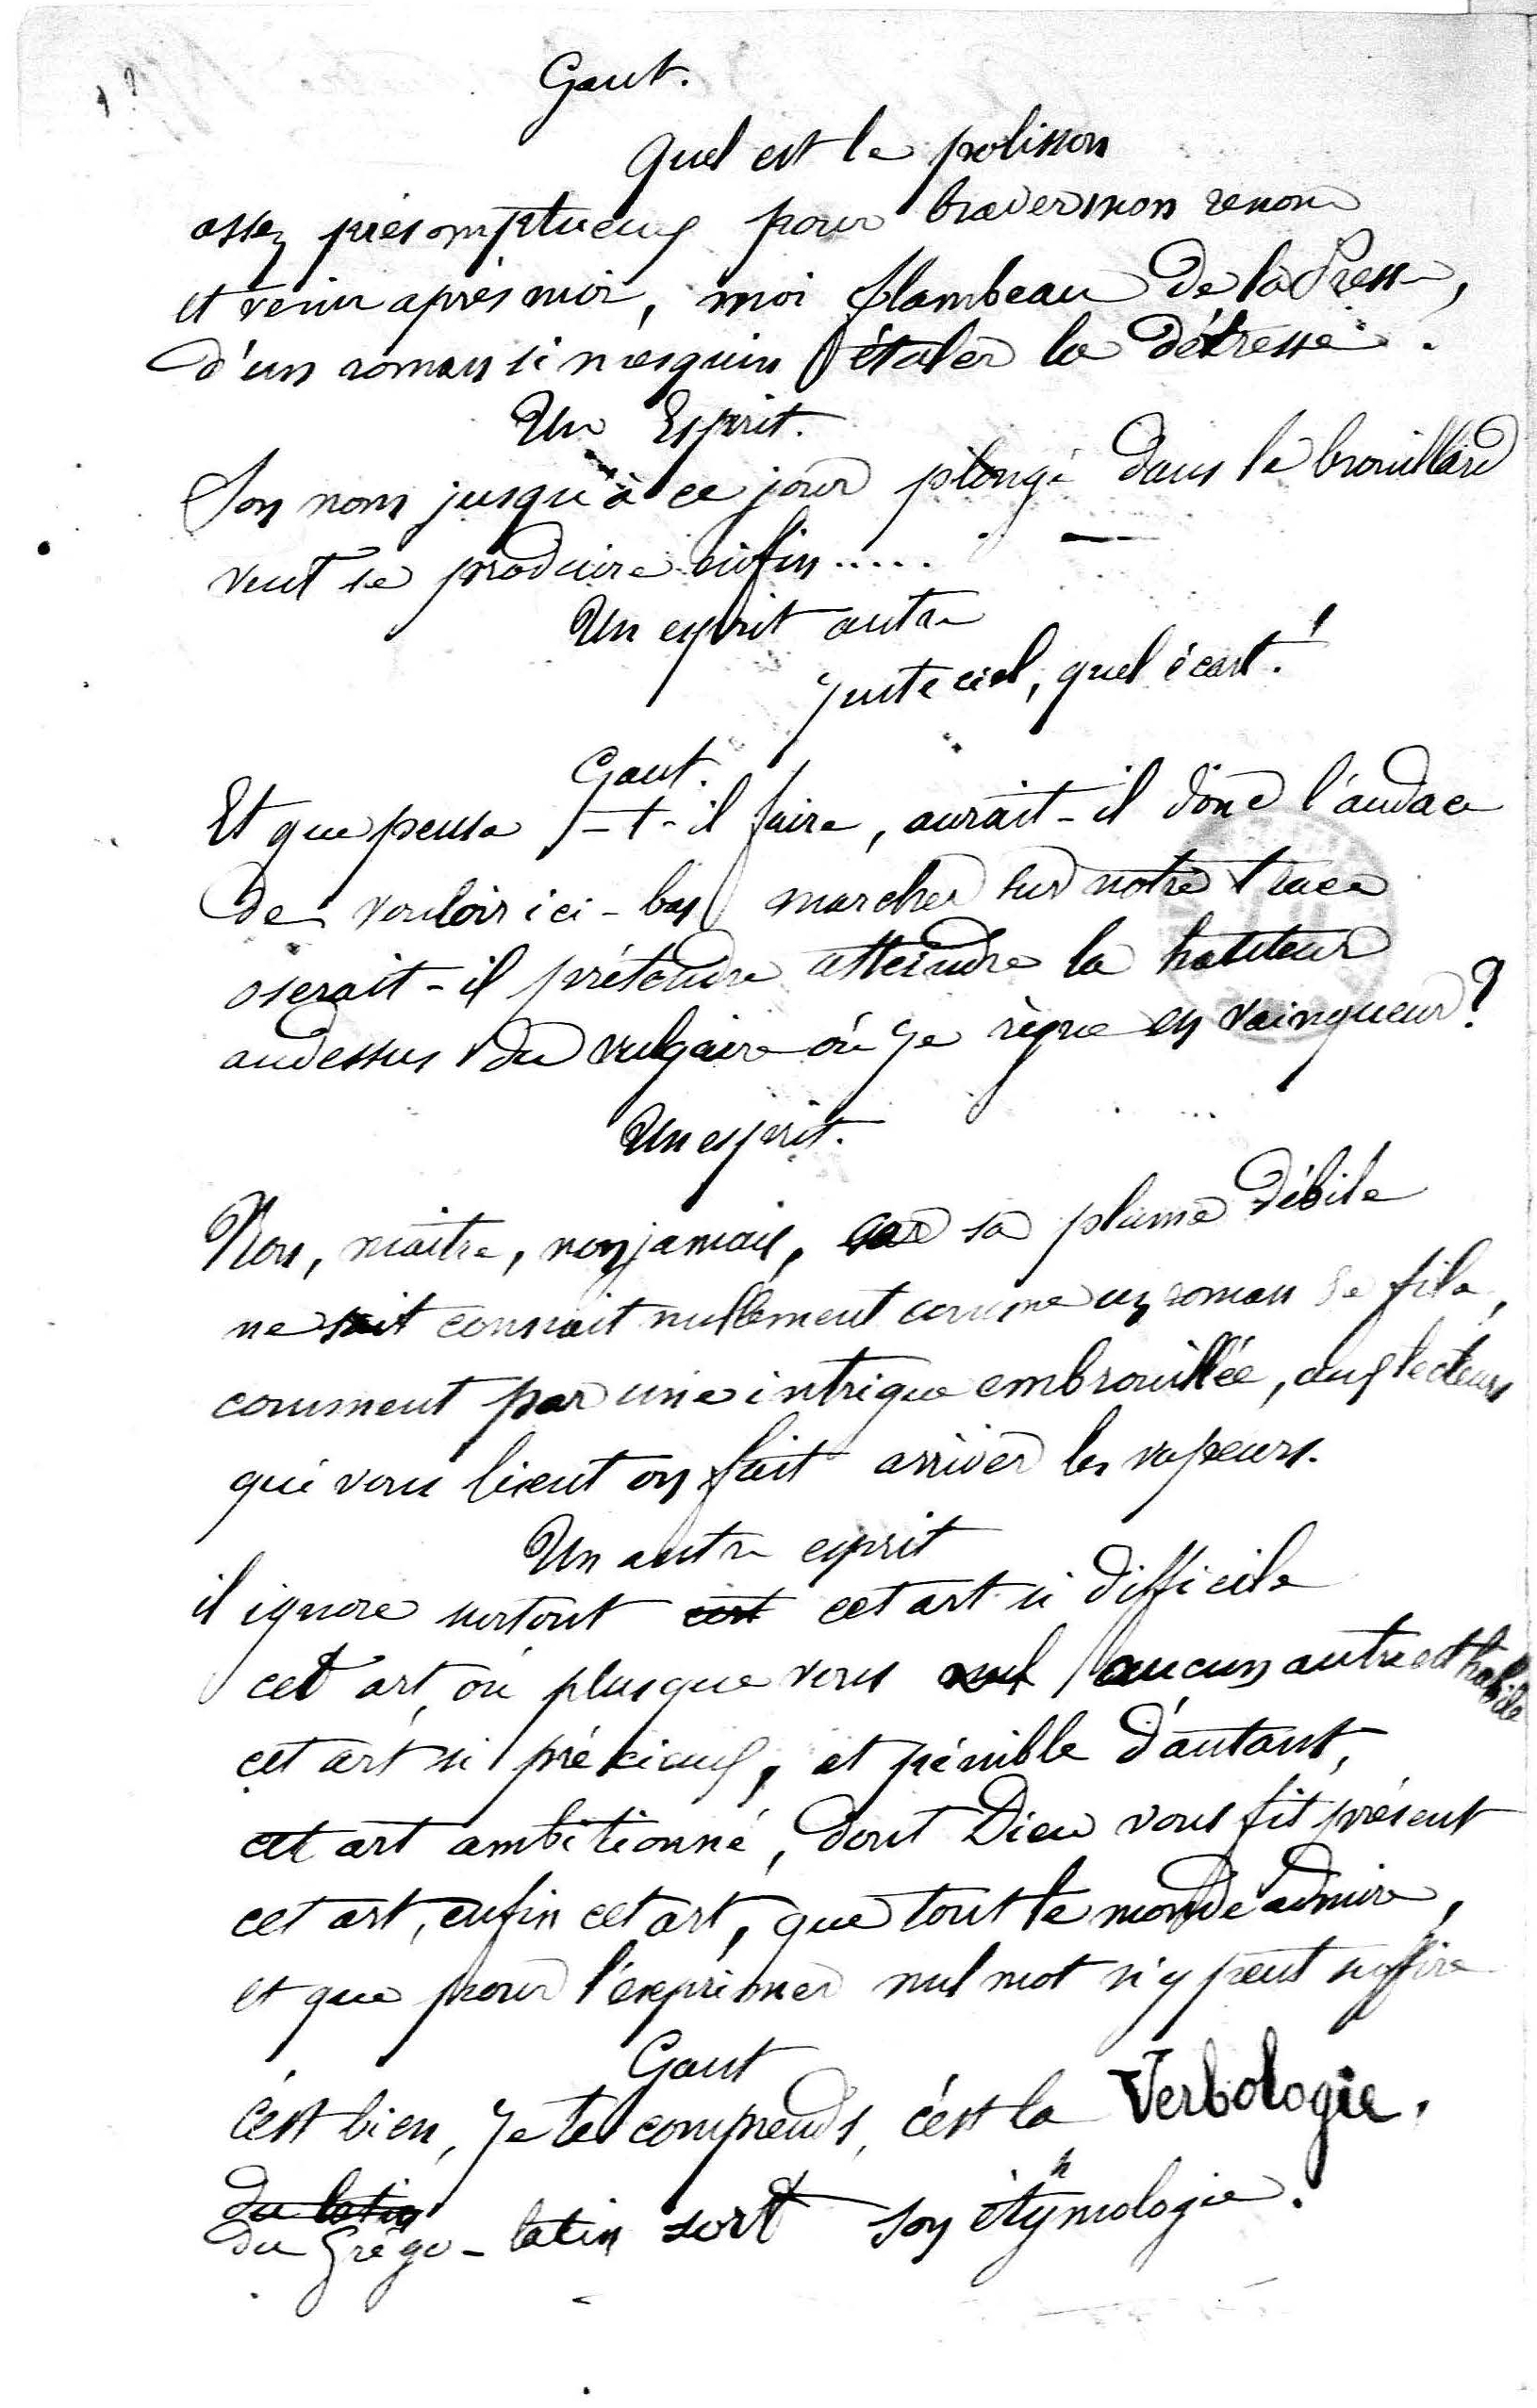 Gaut.
Quel est le polisson
assez présomptueux pour braver mon renom
et venir après moi, moi flambeau de la Presse,
d'un roman si mesquin étaler la détresse.
Un Esprit.
Son nom jusqu'à ce jour plongé dans le brouillard
veut se produire enfin.....
Un esprit autre
Juste ciel, quel écart!
Gaut.
Et que pense-t-il faire, aurait-il donc l'audace
de vouloir ici-bas marcher sur notre trace
oserait-il prétendre atteindre la hauteur
audessus du vulgaire où je règne en vainqueur?
Un esprit.
Non, maître, non jamais, car sa plume débile
ne sait connait nullement comme un roman se file,
comment par une intrigue embrouillée, aux lecteurs
qui vous lisent on fait arriver les vapeurs.
Un autre esprit
il ignore surtout cet art si difficile
cet art, où plus que vous nul aucun autre est habile
cet art si précieux, et pénible d'autant,
cet art ambitionné, dont Dieu vous fit présent
cet art, enfin cet art, que tout le monde admire,
et que pour l'exprimer nul mot n'y peut suffire
Gaut
c'est bien, je te comprends, c'est la Verbologie.
du latin
du Grégo-latin sort son éthymologie.